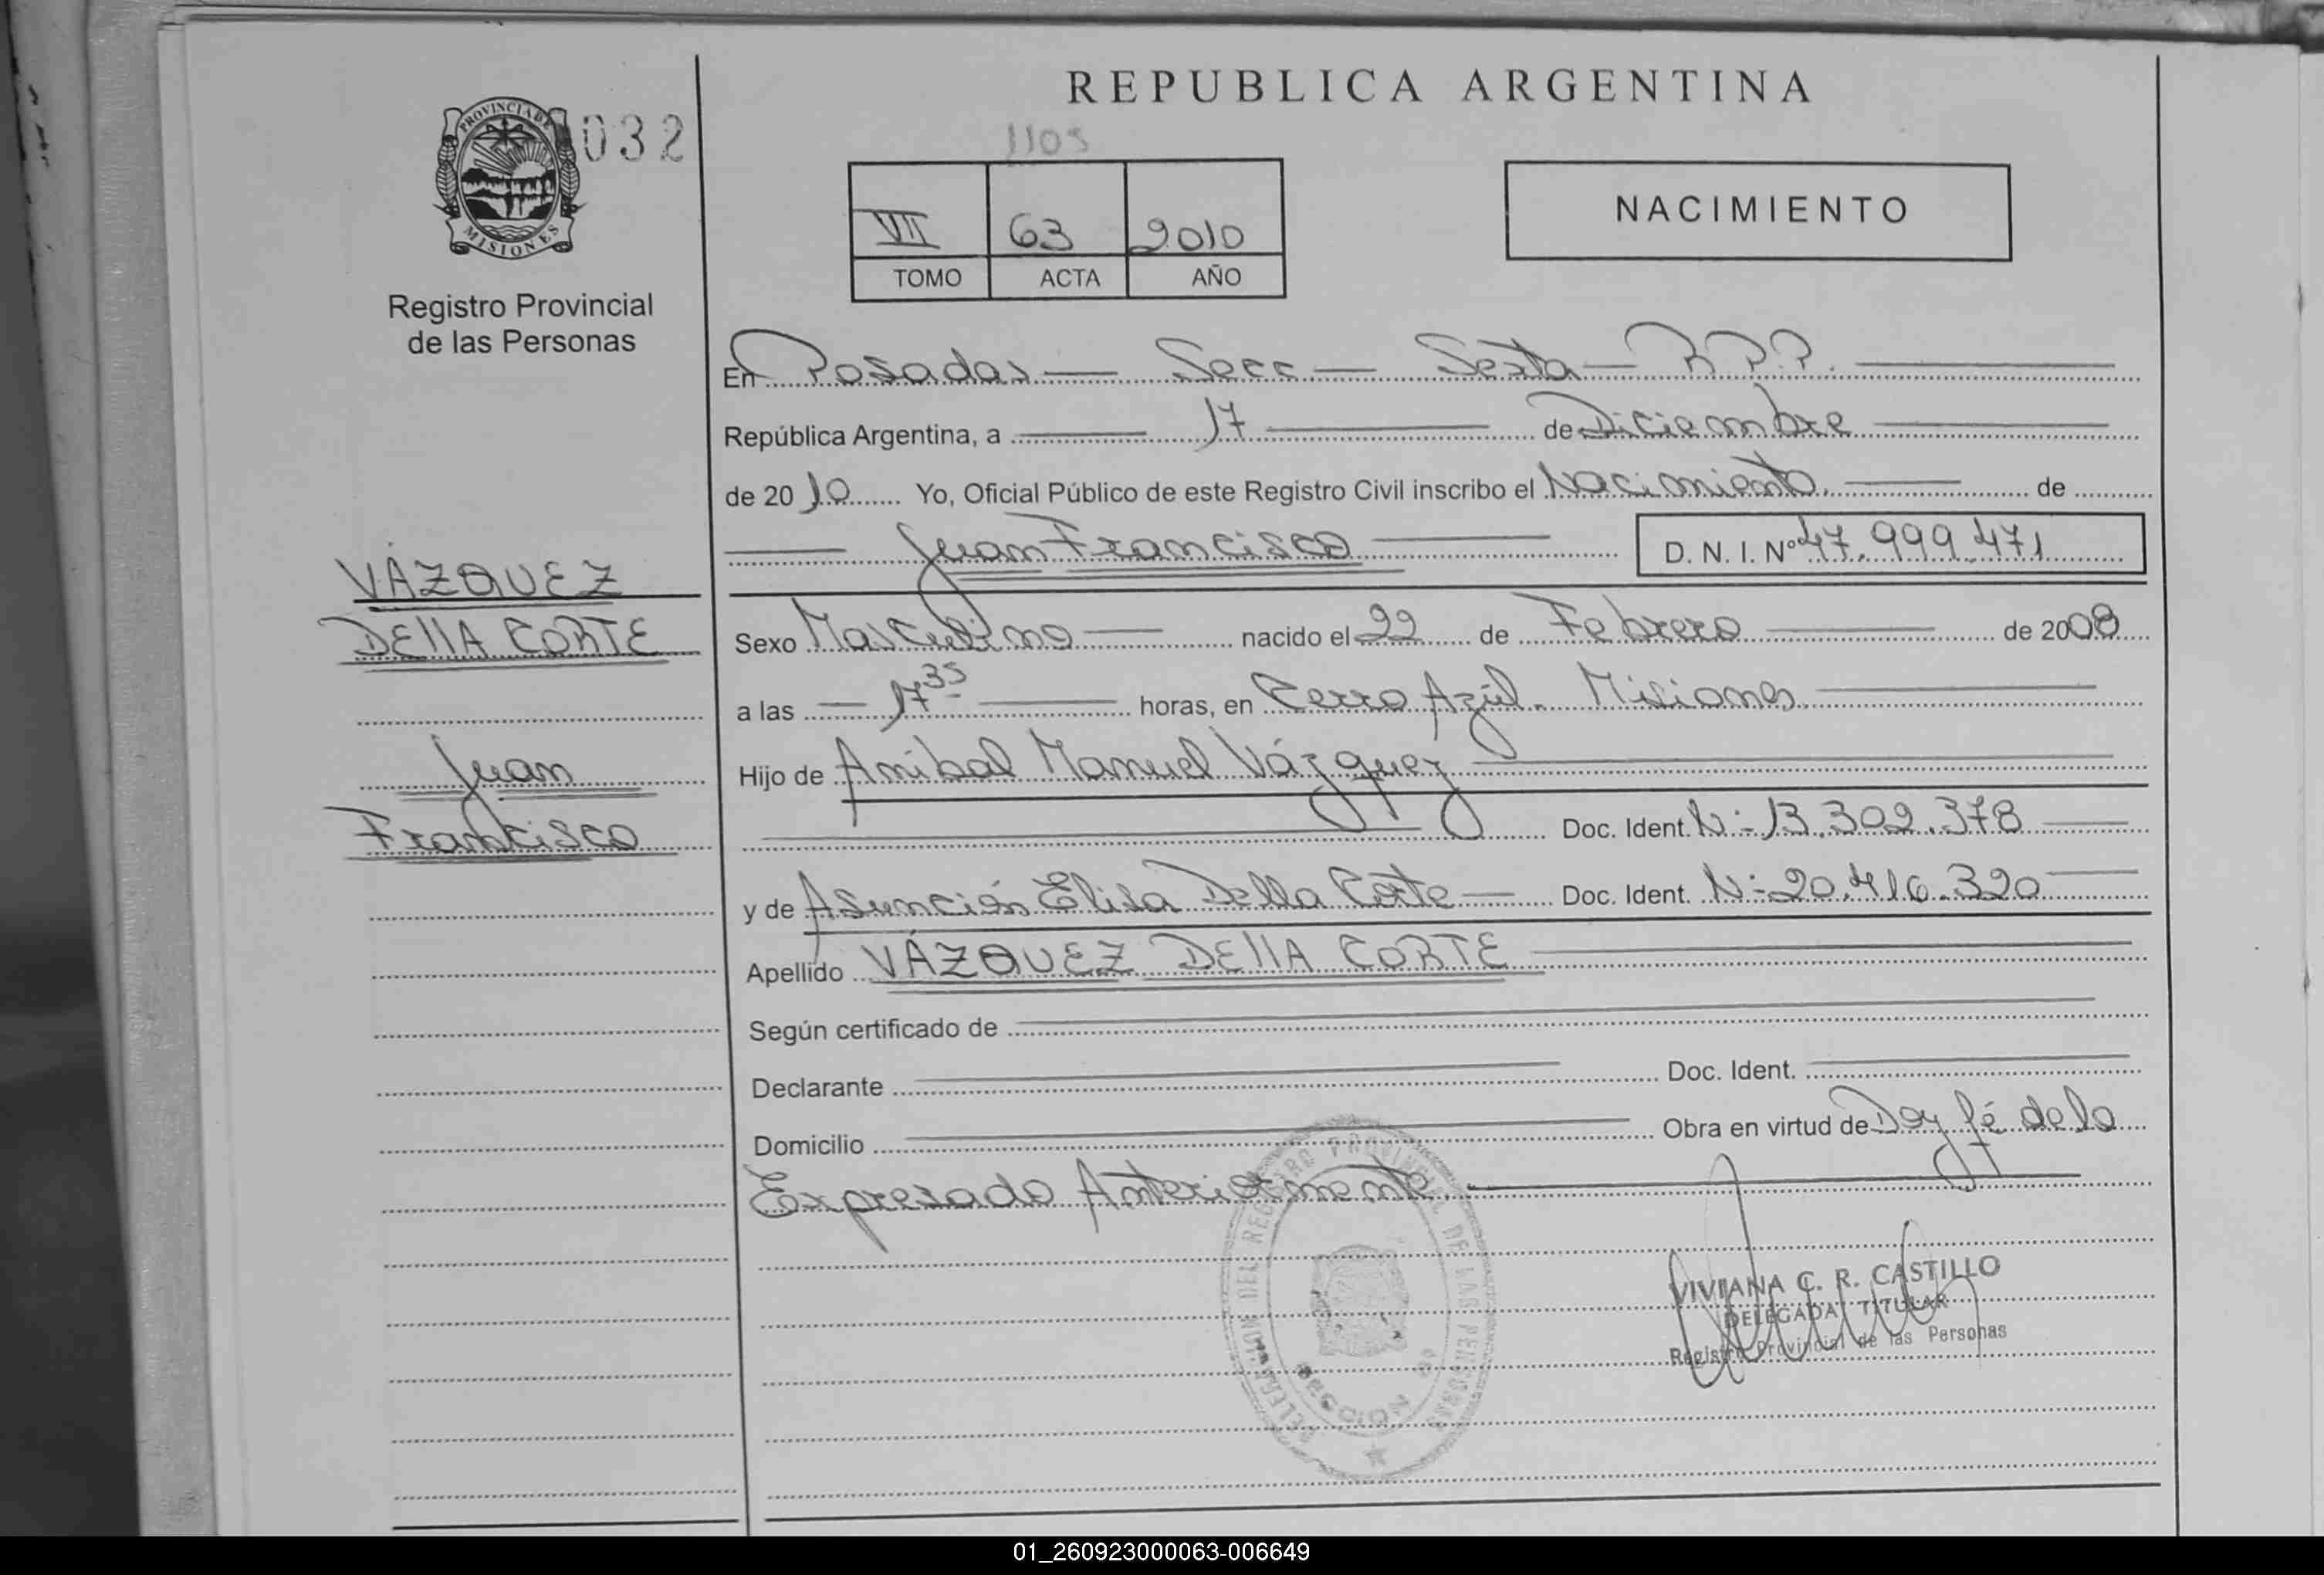 REPUBLICA ARGENTINA
PROVINCIA DE
MISIONES
032
1105
VII 63 2010
TOMO ACTA AÑO
NACIMIENTO
Registro Provincial
de las Personas
En Posadas — Secc — Sexta — R.P.P.
República Argentina, a 17 de Diciembre
de 2010 Yo, Oficial Público de este Registro Civil inscribo el Nacimiento. de
Juan Francisco D. N. I. Nº 47.999.471
VÁZQUEZ
DEllA CORTE
Juan
Francisco
Sexo Masculino nacido el 22 de Febrero de 2008
a las 17 35 horas, en Cerro Azúl. Misiones
Hijo de Aníbal Manuel Vázquez
Doc. Ident. N:- 13.302.378
y de Asunción Elisa Della Corte — Doc. Ident. N:- 20.416.320
Apellido VÁZQUEZ DEllA CORTE
Según certificado de
Declarante Doc. Ident.
Domicilio Obra en virtud de Doy fé de lo
Expresado Anteriormente.
DEL REGISTRO PROVINCIAL DE LAS PERSONAS
SECCION
VIVIANA C. R. CASTILLO
DELEGADA TITULAR
Registro Provincial de las Personas
01_260923000063-006649